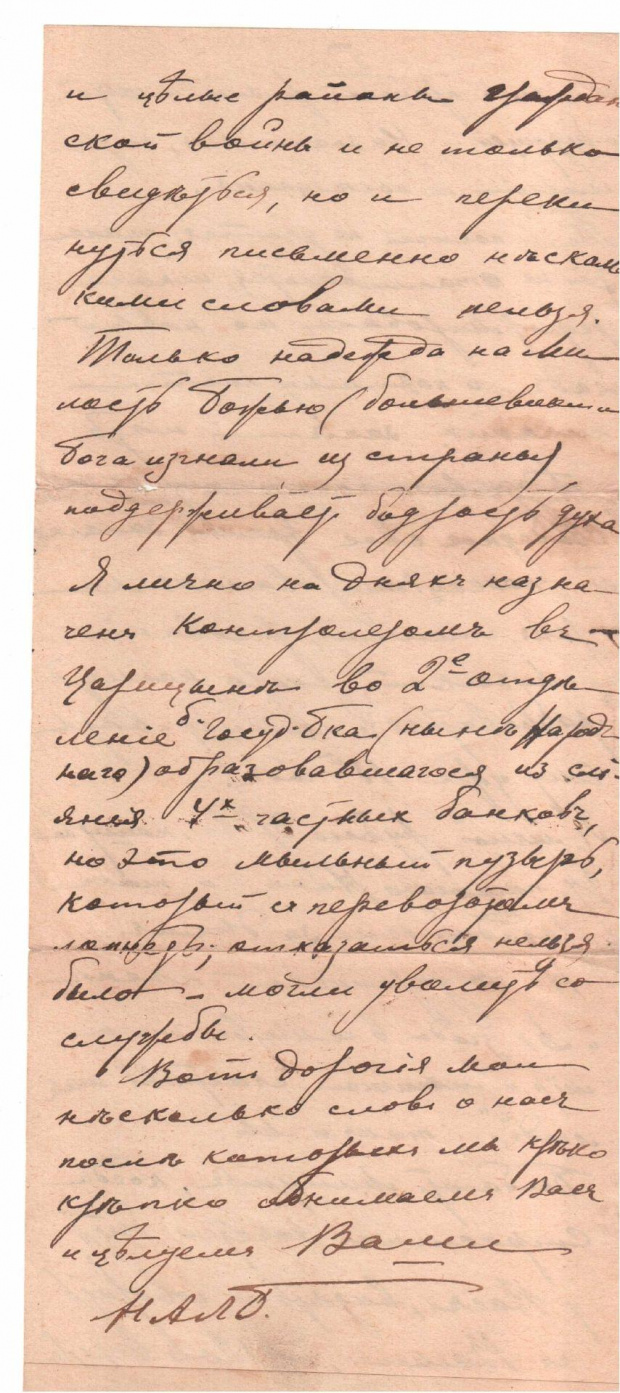 и цѣлые районы граждан
ской войны и не только
свидѣться, но и переки
нуться письменно нѣсколь
кими словами нельзя.
Только надежда на ми
лость Божью (большевики
Бога изгнали из страны)
поддерживаетъ бодрость духа
Я лично на дняхъ назна
ченъ Контролеромъ въ
Царицынъ во 2е отдѣ
леніе б. Госуд. Бка (нынѣ Народ
наго) образовавшагося из слі
янія 4х частныхъ банковъ,
но это мыльный пузырь,
который съ переворотомъ
лопнетъ; отказаться нельзя
было – могли уволить со
службы.
Вотъ дорогія мои
нѣсколько словъ о насъ
послѣ которыхъ мы крѣпко
крѣпко обнимаемъ Васъ
и цѣлуемъ Ваши